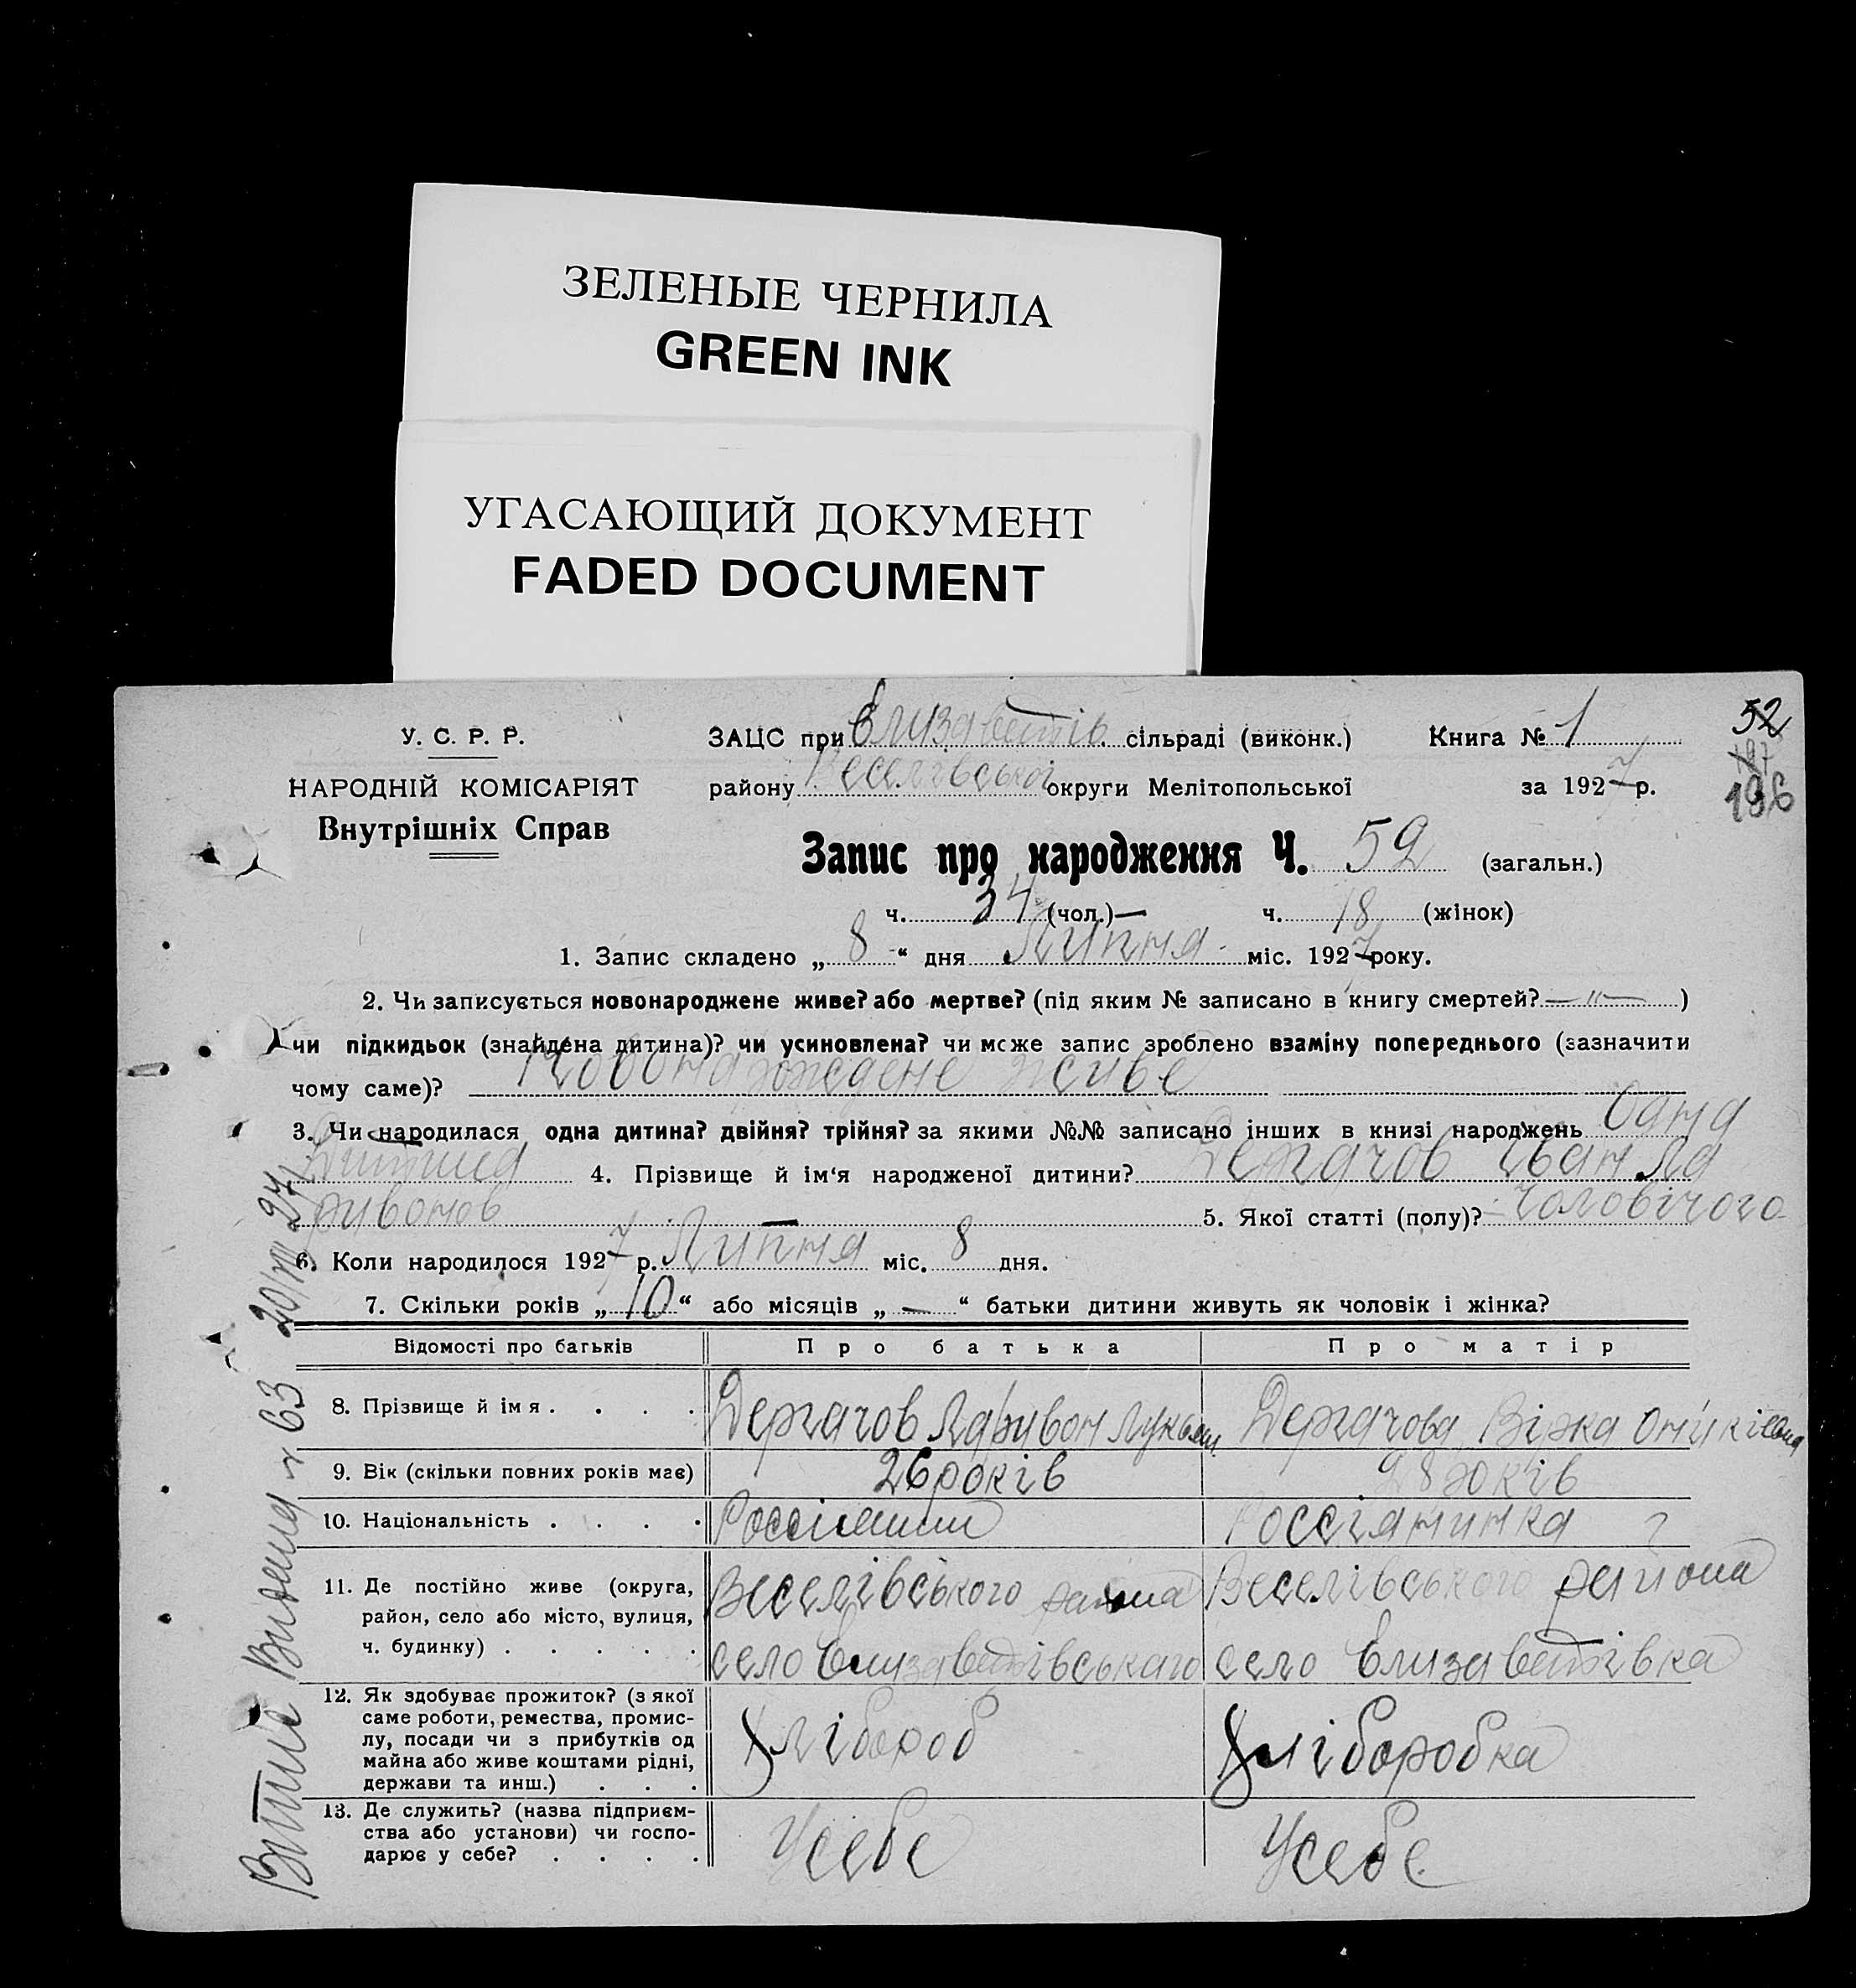 ЗЕЛЕНЫЕ ЧЕРНИЛА
GREEN INK
УГАСАЮЩИЙ ДОКУМЕНТ
FADED DOCUMENT
У. С. Р. Р.
НАРОДНІЙ КОМІСАРІЯТ
Внутрішніх Справ
ЗАЦС при Єлизаветів. сільраді (виконк.) Книга № 1
району Веселівської округи Мелітопольської за 1927 р.
52
197
196
Запис про народження Ч. 52 (загальн.)
ч. 34 (чол.) — ч. 18 (жінок)
1. Запис складено „ 8 “ дня Липня міс. 1927 року.
2. Чи записується новонароджене живе? або мертве? (під яким № записано в книгу смертей? — " — )
чи підкидьок (знайдена дитина)? чи усиновлена? чи може запис зроблено взаміну попереднього (зазначити
чому саме)? Новонарождене живе
3. Чи народилася одна дитина? двійня? трійня? за якими №№ записано інших в книзі народжень Одна
Дитина 4. Прізвище й ім‘я народженої дитини? Дергачов Іван Ла
ривонов 5. Якої статті (полу)? Чоловічого
6. Коли народилося 1927 р. Липня міс. 8 дня.
7. Скільки років „ 10 “ або місяців „ — “ батьки дитини живуть як чоловік і жінка?
Відомості про батьків Про батька Про матір
8. Прізвище й імя . . . . Дергачов Ларивон Дергачова Вірка
9. Вік (скільки повних років має) 26 років 28 років
10. Національність . . . . Россіянин Россіянинка
11. Де постійно живе (округа, район, село або місто, вулиця, ч. будинку) . . . . .
Веселівського района Веселівського района
село Єлизаветівського село Єлизаветівка
12. Як здобуває прожиток? (з якої
саме роботи, ремества, промис-
лу, посади чи з прибутків од
майна або живе коштами рідні,
держави та инш.) . . .
Хлібороб Хліборобка
13. Де служить? (назва підприєм-
ства або установи) чи госпо-
дарює у себе? . . . .
Усебе Усебе